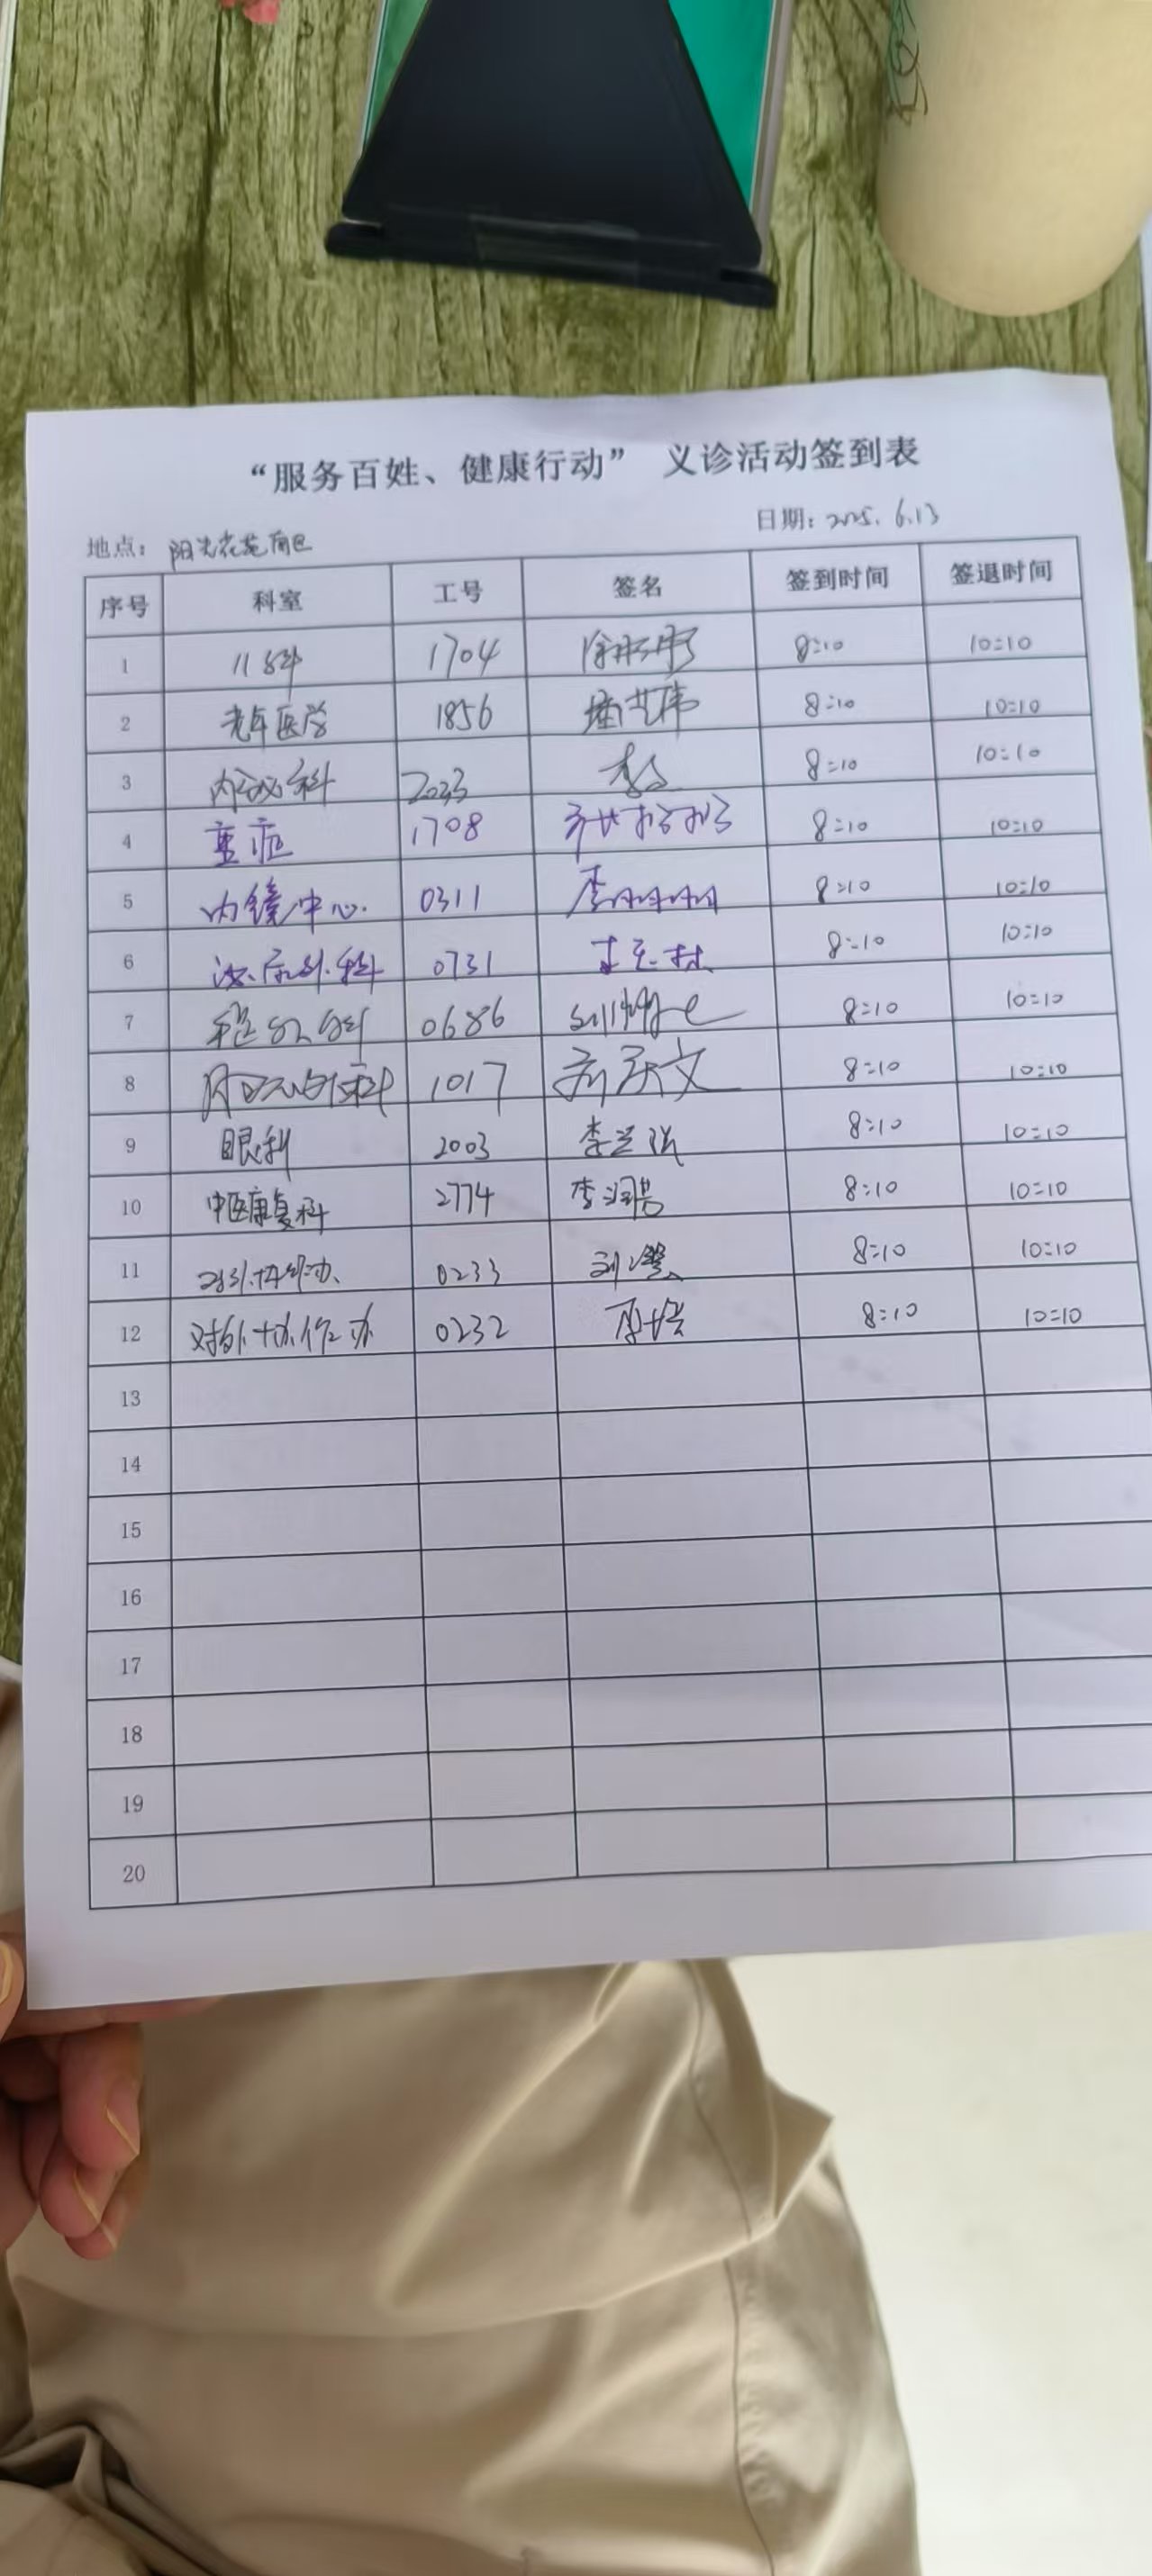 “服务百姓、健康行动” 义诊活动签到表
地点： 阳光花苑南区 日期：2025.6.13
序号 科室 工号 签名 签到时间 签退时间
1 儿科 1704 8:10 10:10
2 老年医学 1856 8:10 10:10
3 内分泌科 2033 8:10 10:10
4 重症 1708 8:10 10:10
5 内镜中心. 0311 李 8:10 10:10
6 泌尿外科 0731 8:10 10:10
7 0686 8:10 10:10
8 科 1017 文 8:10 10:10
9 眼科 2003 李 8:10 10:10
10 中医康复科 2774 李 8:10 10:10
11 对外协作办 0233 刘 8:10 10:10
12 对外协作办 0232 8:10 10:10
13
14
15
16
17
18
19
20